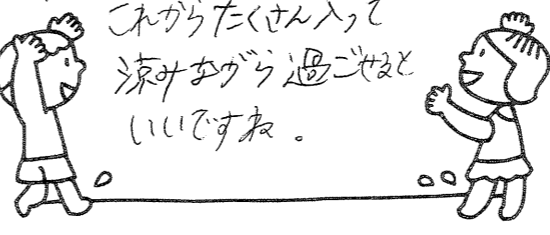 これからたくさん入って
涼みながら過ごせると
いいですね。